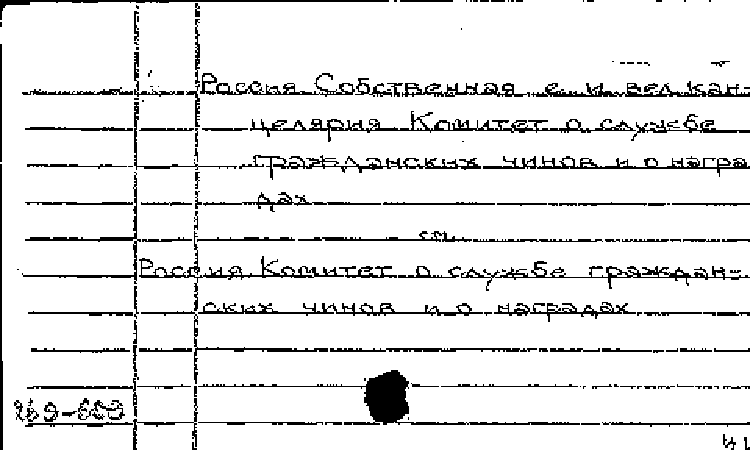 Россия Собственная е. и. вел. кан-
целярия Комитет о службе
гражданских чинов и о награ
дах
см.
Россия. Комитет о службе граждан-
ских чинов и о наградах
269-689